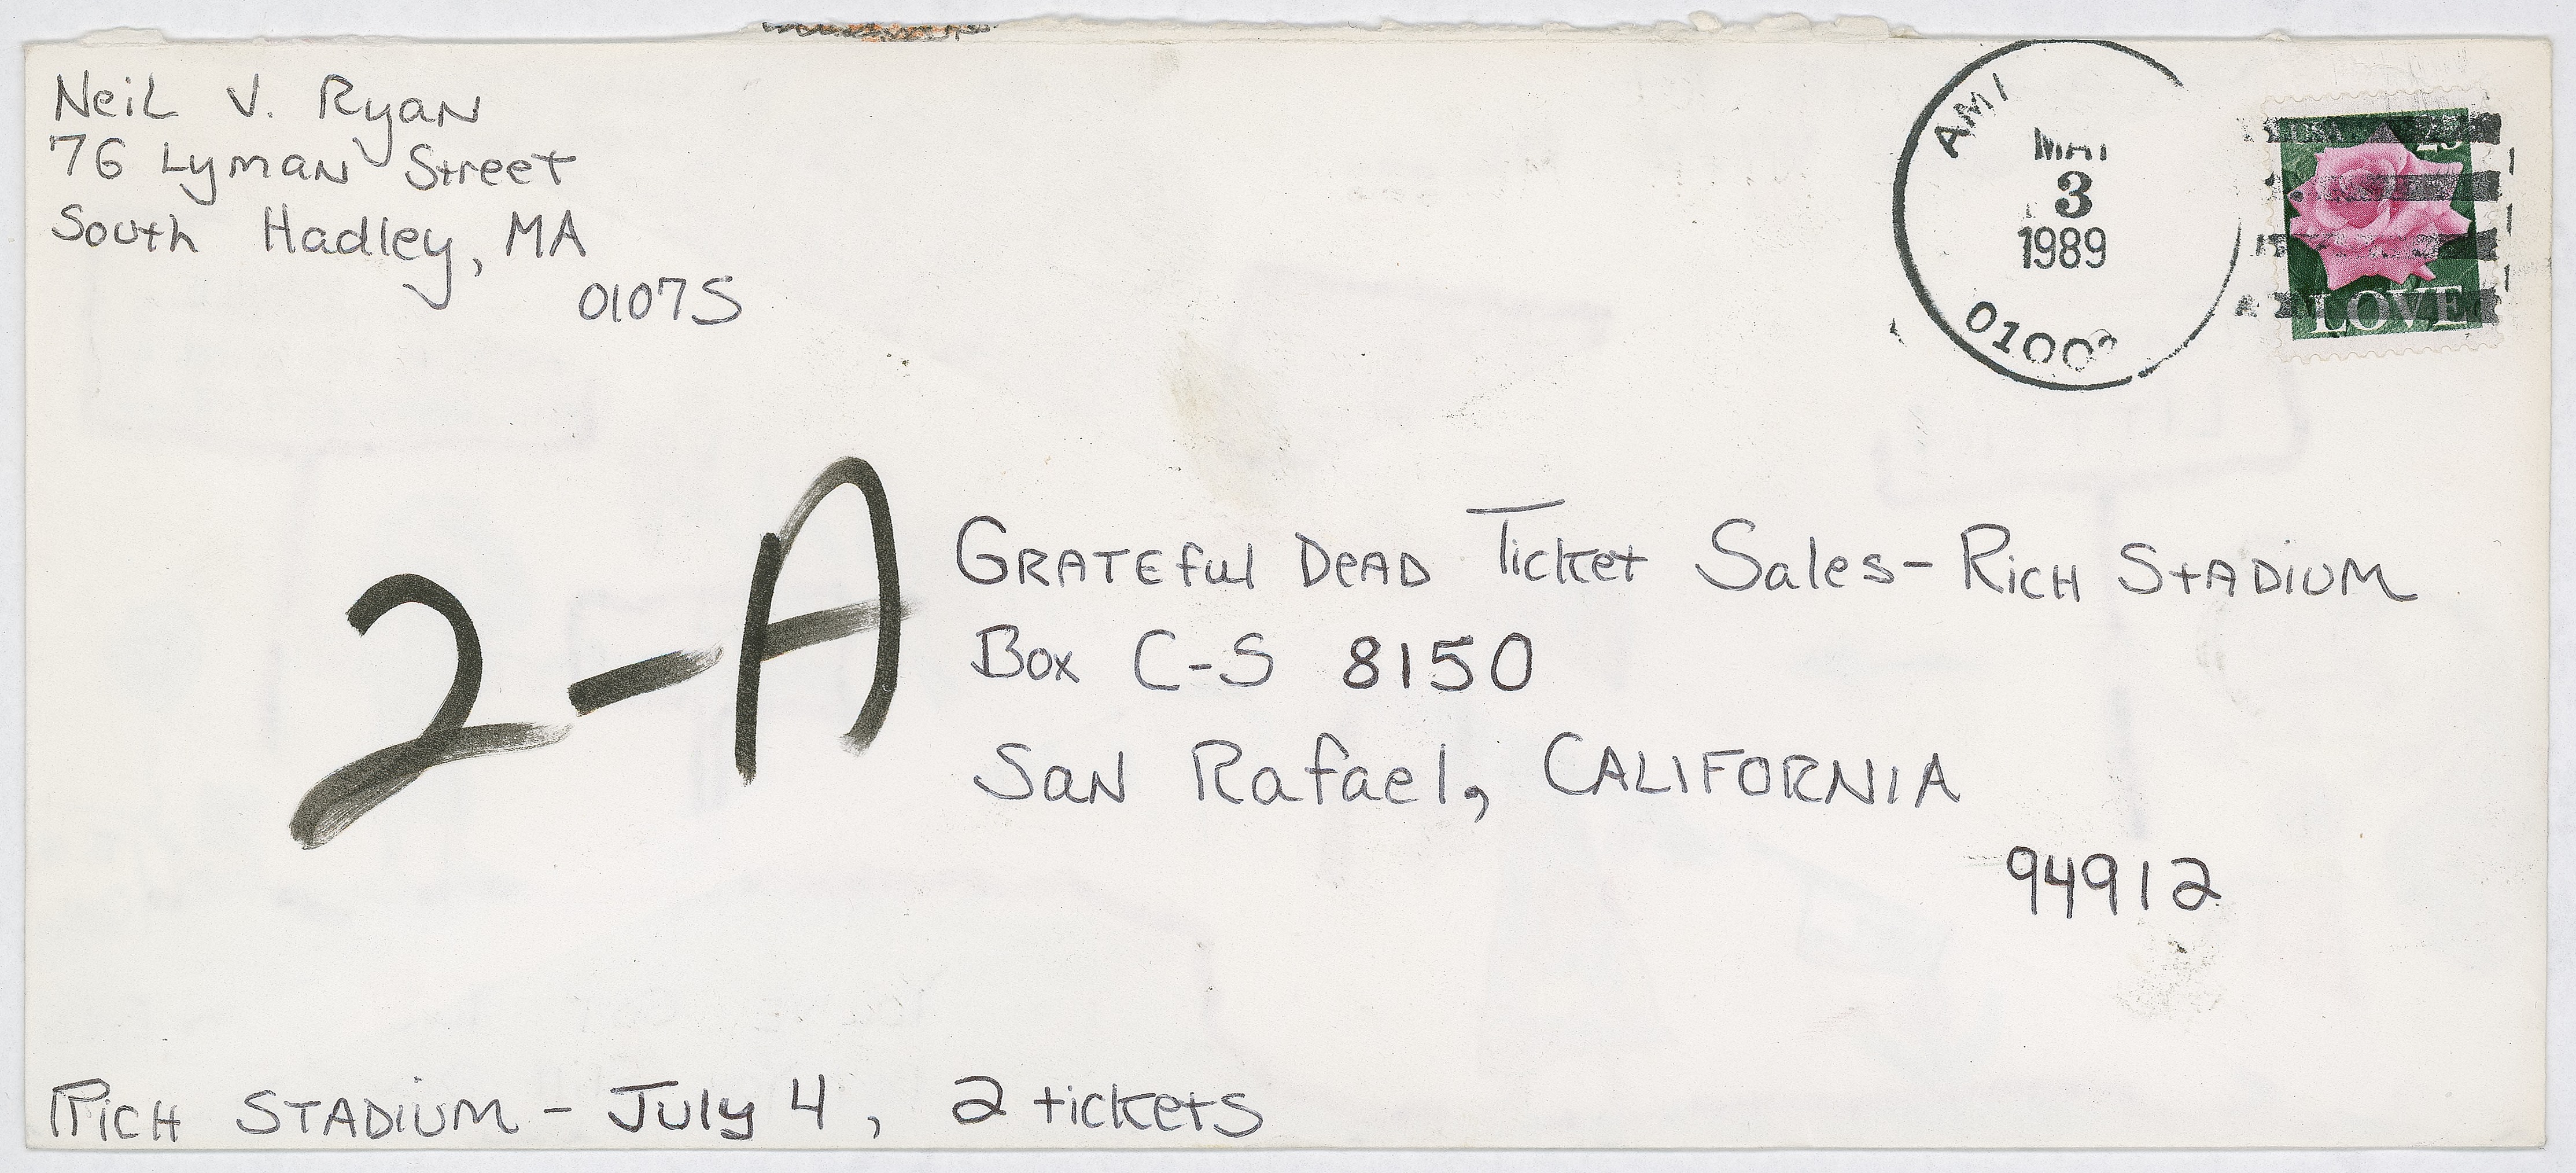 Neil V. Ryan
76 Lyman Street
South Hadley, MA
01075
AM
3
1989
0100
USA
25
LOVE
2-A
GRATEful DeAD Ticket Sales- RicH StADIUM
Box C-S 8150
San Rafael, CALIFORNIA
94912
RicH STADIUM - July 4, 2 tickets